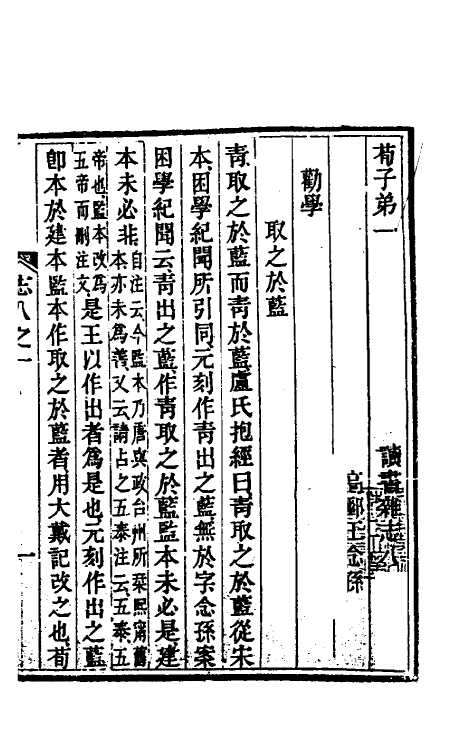 荀子弟一
讀書雜志八
高郵王念孫
勸學
取之於藍
青取之於藍而青於藍盧氏抱經曰青取之於藍從宋
本困學紀聞所引同元刻作青出之藍無於字念孫案
困學紀聞云青出之藍作青取之於藍監本未必是建
本未必非自注云今監本乃唐與政台州所栞熙甯舊
本亦未爲善又云請占之五泰注云五泰五
帝也監本改爲
五帝而刪注文是王以作出者爲是也元刻作出之藍
卽本於建本監本作取之於藍者用大戴記改之也荀
志八之一
一